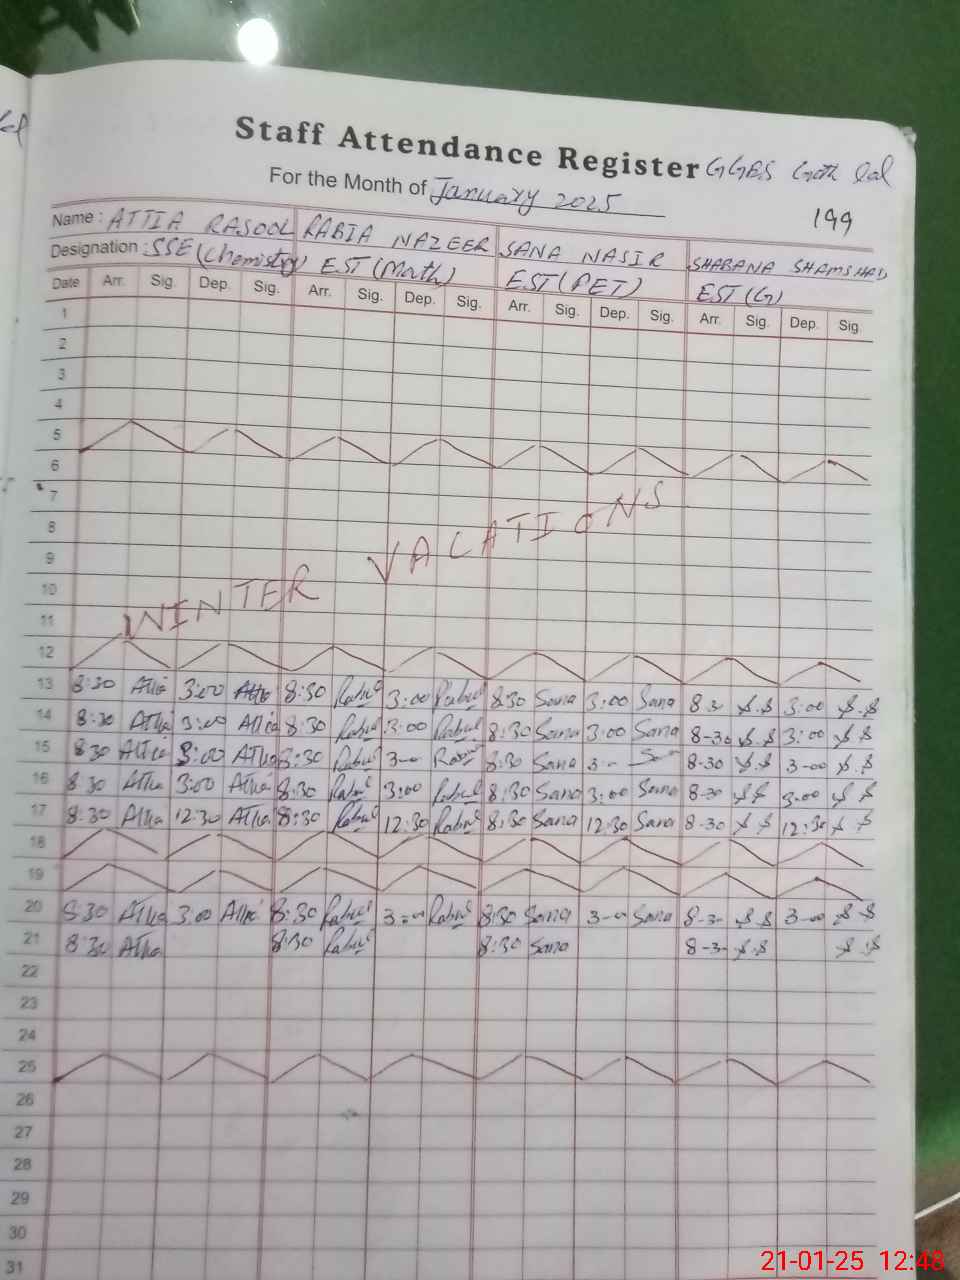 Staff Attendance Register GGES Goth Lal
For the Month of January 2025
199
Name : ATTIA RASOOL RABIA NAZEER SANA NASIR SHABANA SHAMSHAD
Designation : SSE (Chemistry) EST (Math) EST (PET) EST (G)
Date Arr. Sig. Dep. Sig. Arr. Sig. Dep. Sig. Arr. Sig. Dep. Sig. Arr. Sig. Dep. Sig.
1
2
3
4
5
6
7
8
9
10
11
WINTER VACATIONS
12
13 8:30 Attia 3:00 Attia 8:30 Rabia 3:00 Rabia 8:30 Sana 3:00 Sana 8-30 S.S 3:00 S.S
14 8:30 Attia 3:00 Attia 8:30 Rabia 3:00 Rabia 8:30 Sana 3:00 Sana 8-30 S.S 3:00 S.S
15 8:30 Attia 3:00 Attia 8:30 Rabia 3-00 Rabia 8:30 Sana 3-00 Sana 8-30 S.S 3-00 S.S
16 8:30 Attia 3:00 Attia 8:30 Rabia 3:00 Rabia 8:30 Sana 3:00 Sana 8-30 S.S 3:00 S.S
17 8:30 Attia 12:30 Attia 8:30 Rabia 12:30 Rabia 8:30 Sana 12:30 Sana 8-30 S.S 12:30 S.S
18
19
20 8:30 Attia 3:00 Attia 8:30 Rabia 3:00 Rabia 8:30 Sana 3-00 Sana 8-30 S.S 3-00 S.S
21 8:30 Attia 8:30 Rabia 8:30 Sana 8-30 S.S S.S
22
23
24
25
26
27
28
29
30
31
21-01-25 12:48